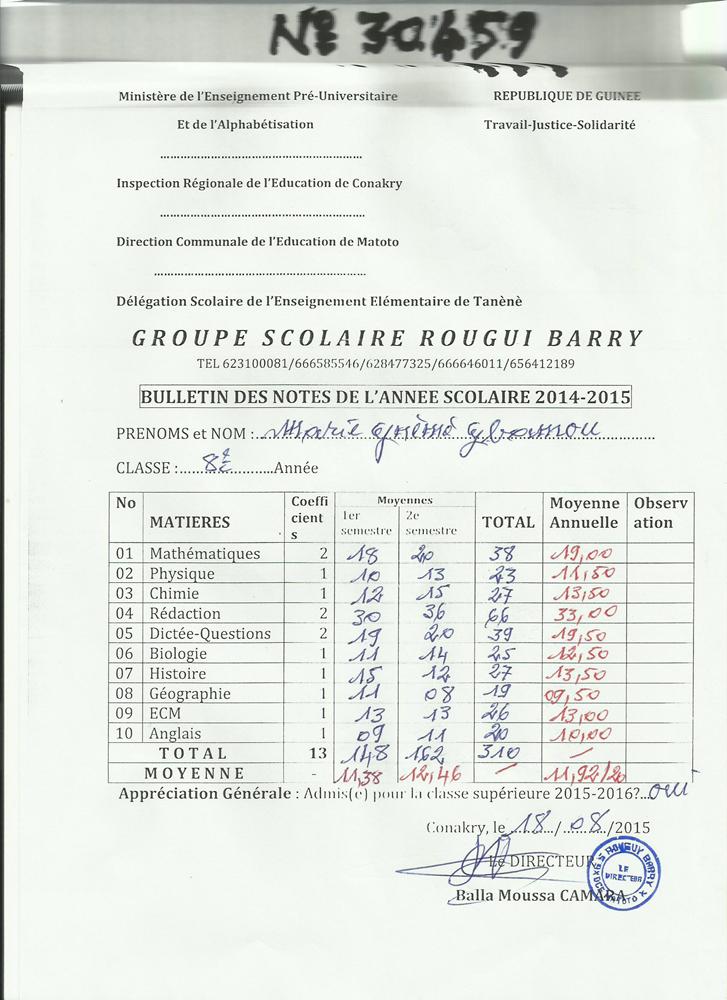 Nº 30459
Ministère de l'Enseignement Pré-Universitaire REPUBLIQUE DE GUINEE
Et de l'Alphabétisation Travail-Justice-Solidarité
Inspection Régionale de l'Education de Conakry
Direction Communale de l'Education de Matoto
Délégation Scolaire de l'Enseignement Elémentaire de Tanènè
GROUPE SCOLAIRE ROUGUI BARRY
TEL 623100081/666585546/628477325/666646011/656412189
BULLETIN DES NOTES DE L'ANNEE SCOLAIRE 2014-2015
PRENOMS et NOM : Marie Gbamou
CLASSE : 8e Année
No MATIERES Coefficients Moyennes 1er semestre 2e semestre TOTAL Moyenne Annuelle Observation
01 Mathématiques 2 18 20 38 19,00
02 Physique 1 10 13 23 11,50
03 Chimie 1 12 15 27 13,50
04 Rédaction 2 30 36 66 33,00
05 Dictée-Questions 2 19 20 39 19,50
06 Biologie 1 11 14 25 12,50
07 Histoire 1 15 12 27 13,50
08 Géographie 1 11 08 19 09,50
09 ECM 1 13 13 26 13,00
10 Anglais 1 09 11 20 10,00
TOTAL 13 148 162 310 -
MOYENNE - 11,38 12,46 - 11,92/20
Appréciation Générale : Admis(e) pour la classe supérieure 2015-2016?...oui
Conakry, le 18/08/2015
Le DIRECTEUR
LE DIRECTEUR
Balla Moussa CAMARA